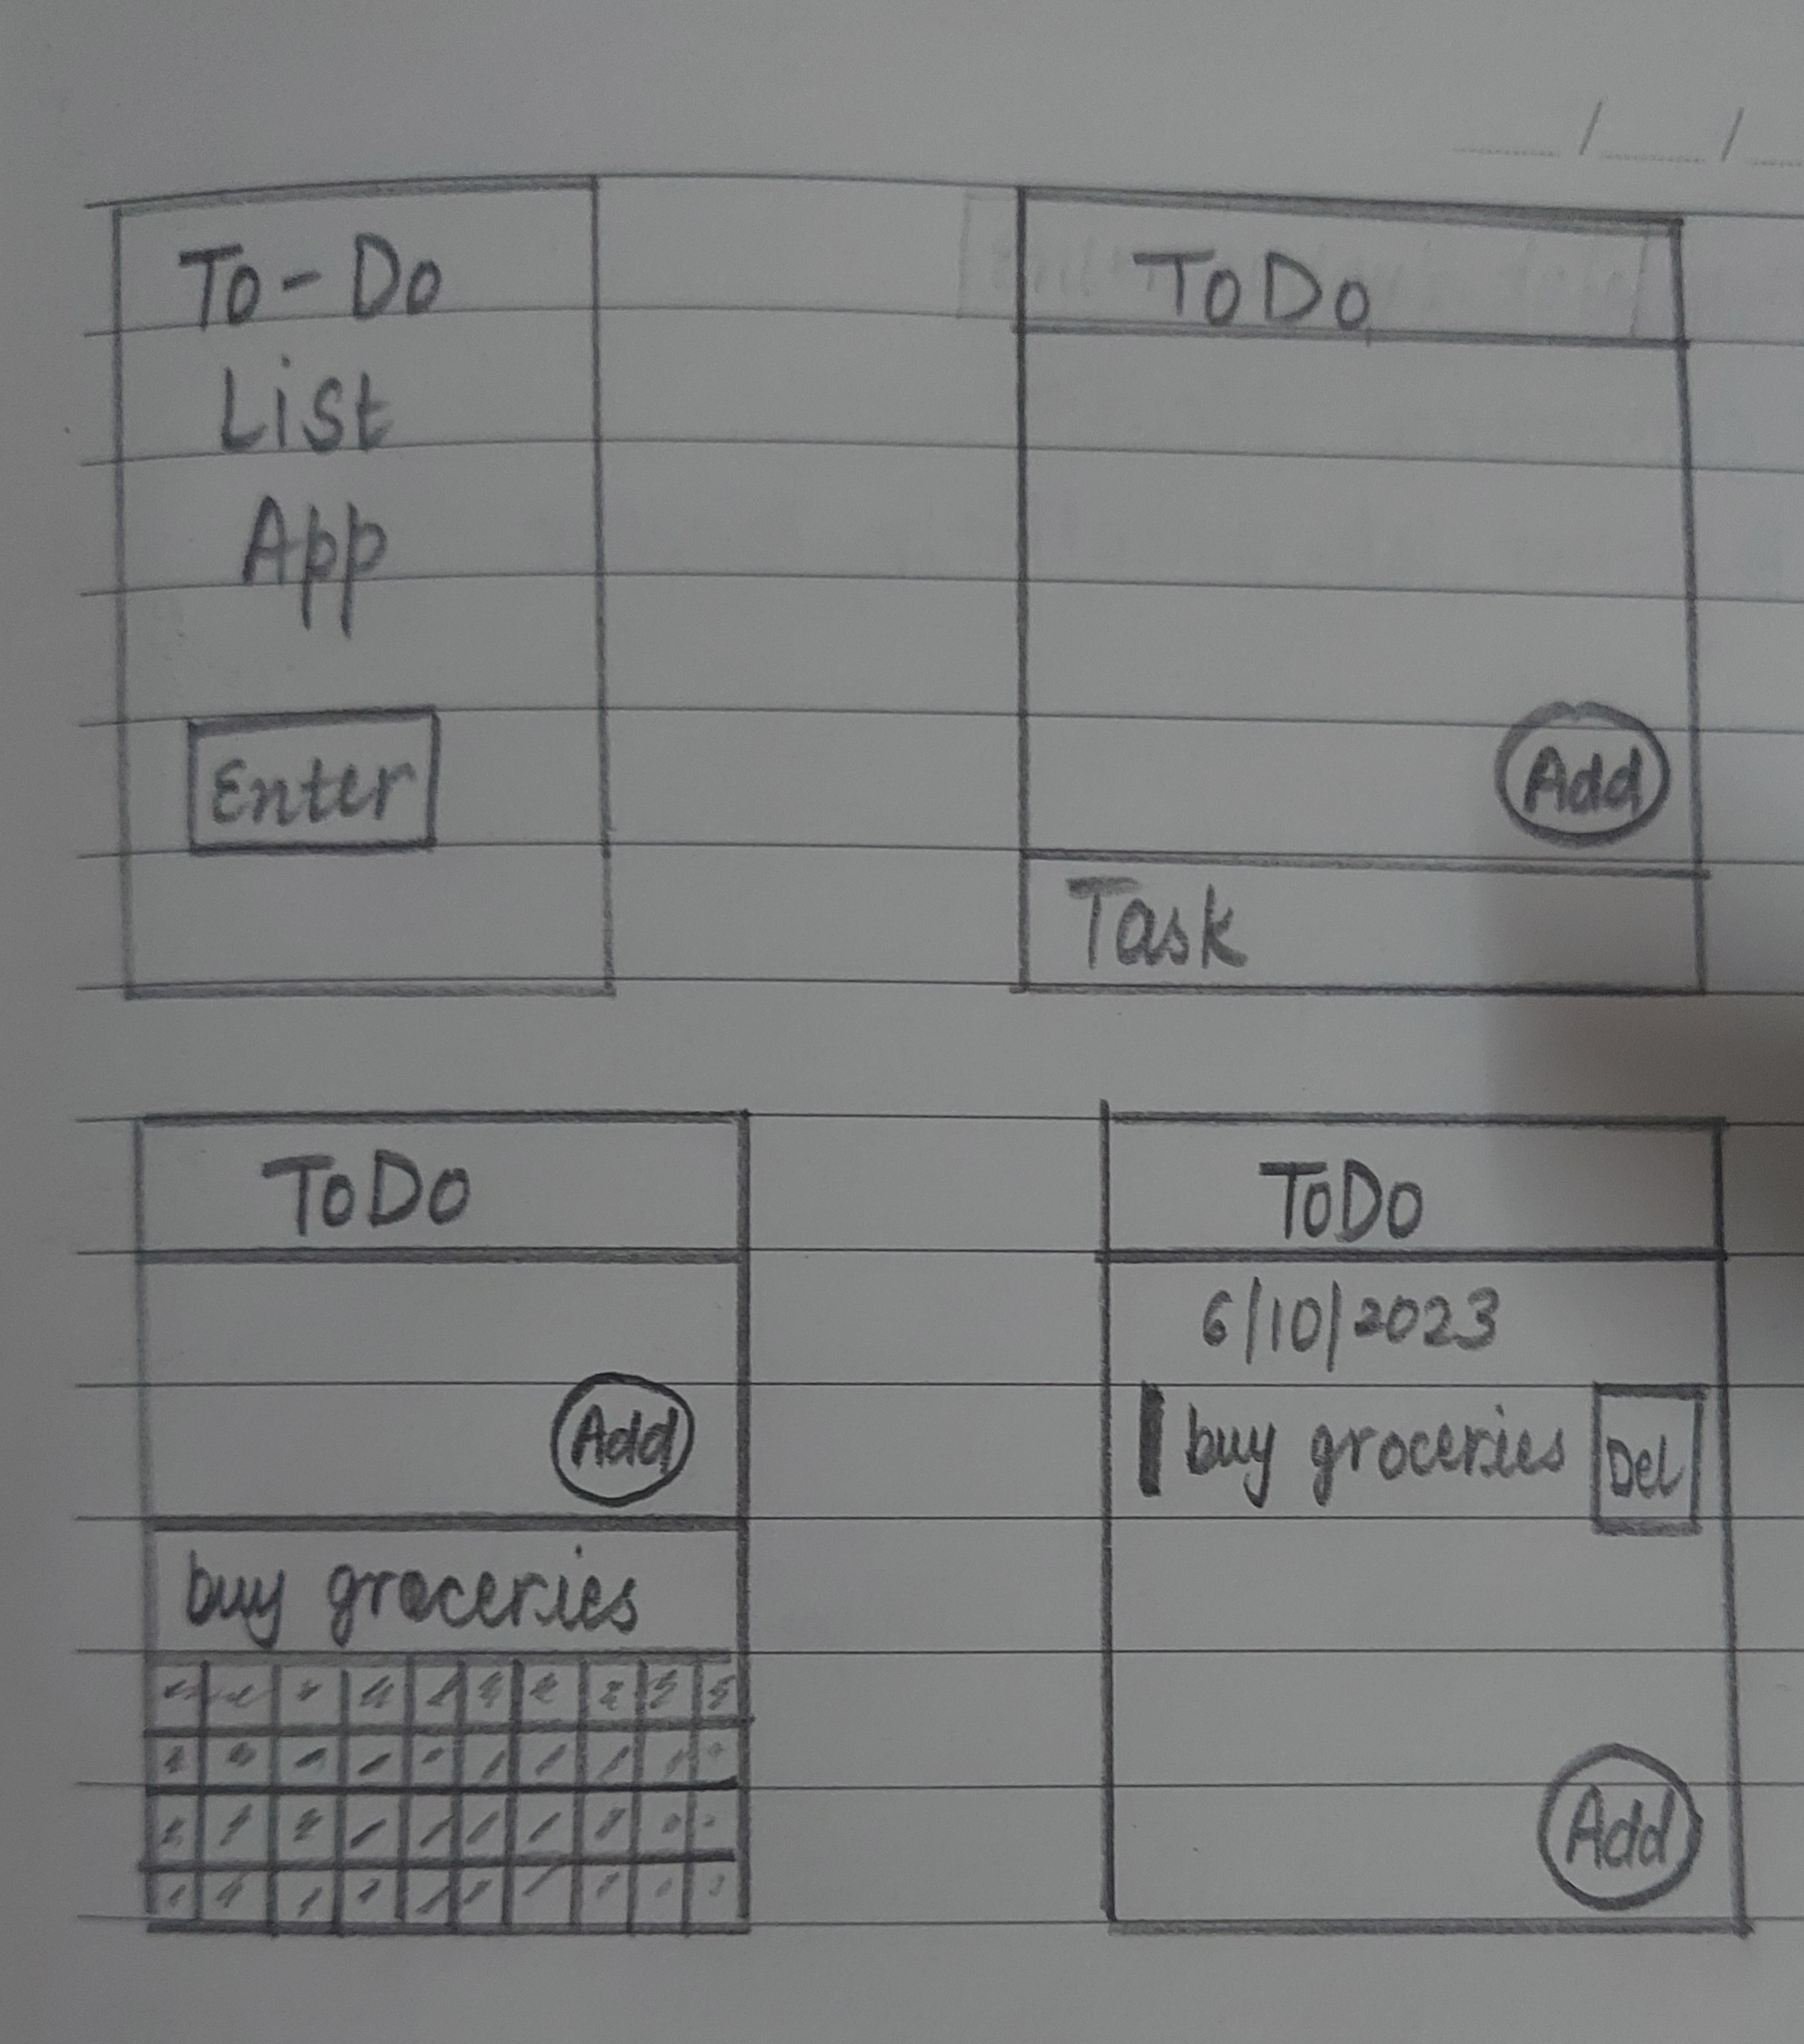 To-Do
List
App
Enter
ToDo
Add
Task
ToDo
Add
buy groceries
ToDo
6/10/2023
buy groceries Del
Add